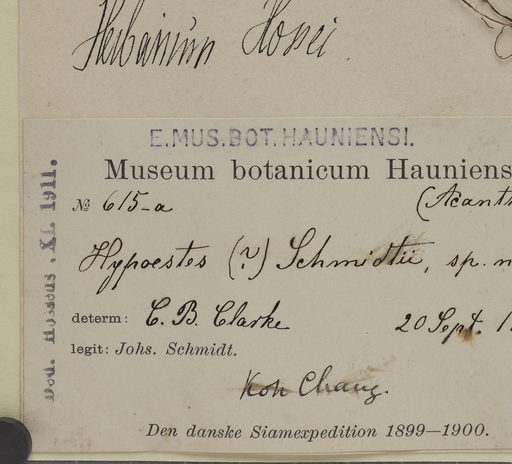 Herbarium Hossei.
E.MUS.BOT.HAUNIENSI.
Museum botanicum Hauniens
№ 615-a (Acanth
Hypoestes (?) Schmidtii, sp. n
determ: C. B. Clarke 20 Sept. 1
legit: Johs. Schmidt.
Koh Chang.
Den danske Siamexpedition 1899—1900.
Ded. Hosseus. XI. 1911.